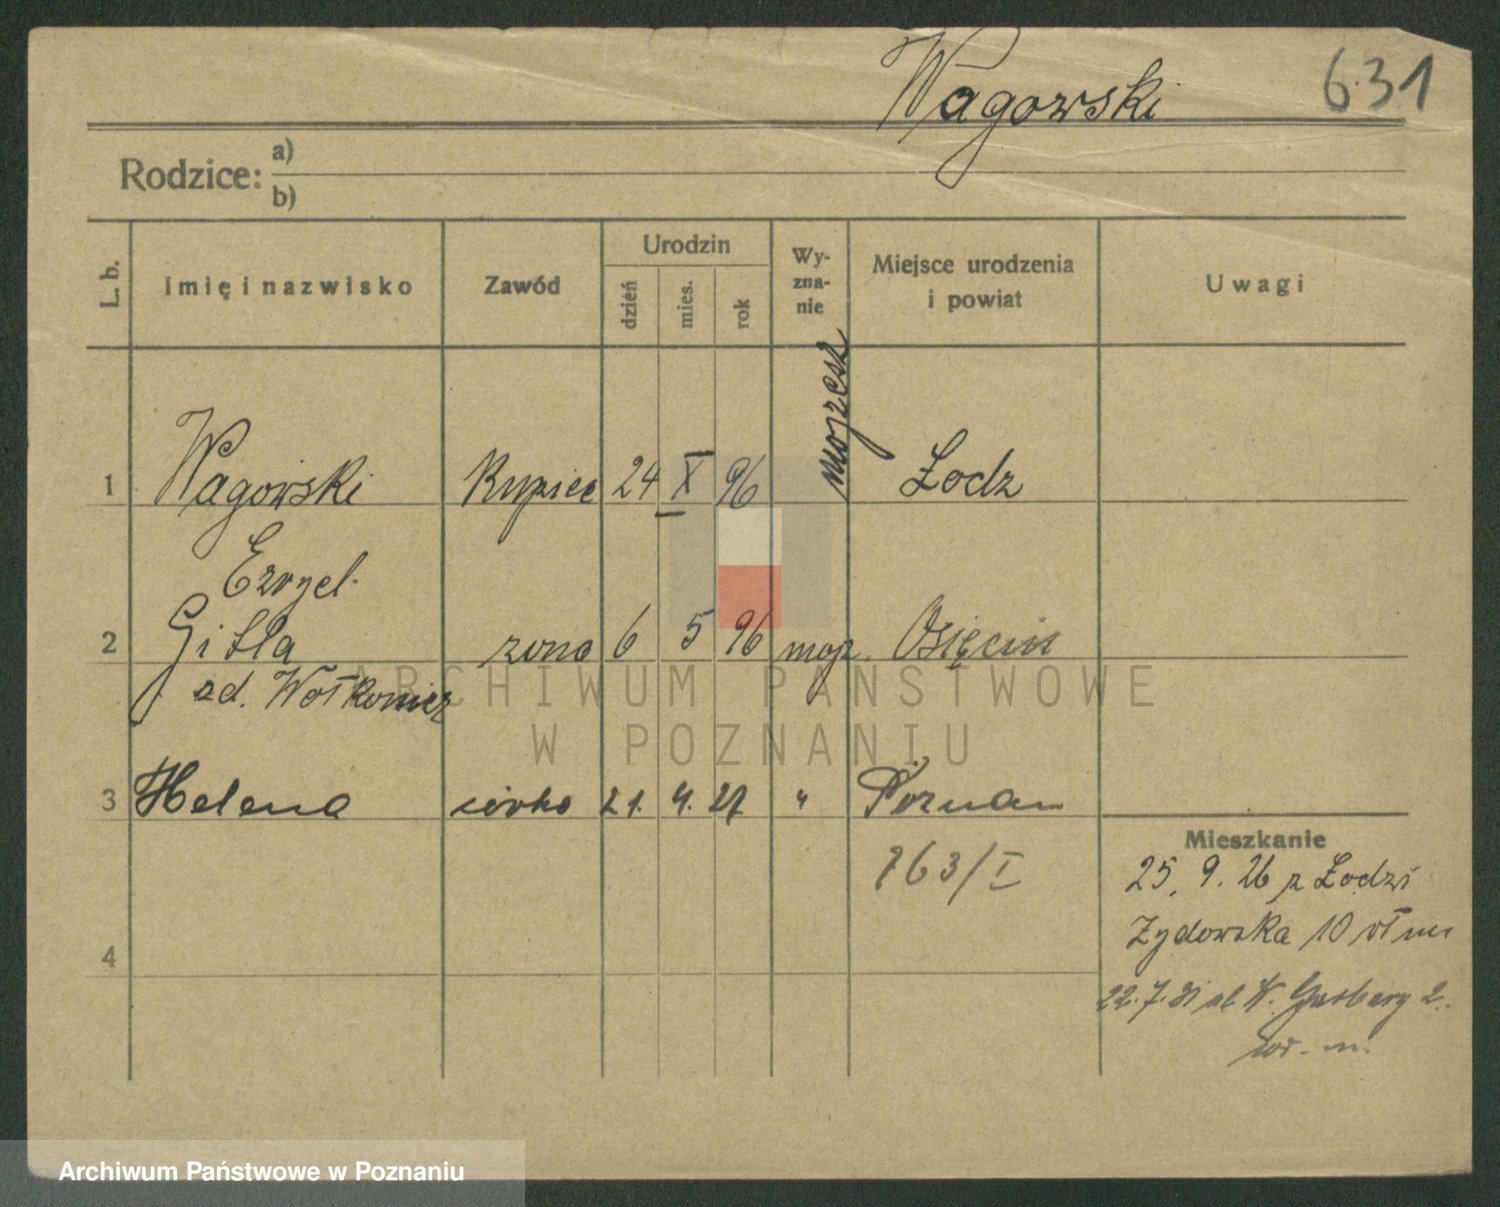 Wagowski 631
Rodzice: a)
b)
L. b. Imię i nazwisko Zawód Urodzin dzień mies. rok Wy-zna-nie Miejsce urodzenia i powiat Uwagi
1 Wagowski Kupiec 24 X 96 mojżesz Łodz
Ezryel
2 Gitla żona 6 5 96 mojz. Osięcin
zd. Wołkowicz
3 Helena córka 21. 4. 27 " Poznan
Mieszkanie
763/I
25. 9. 26 z Łodzi
Zydowska 10 wł m
4
22. 7. 31 W. Garbary 2.
m.
ARCHIWUM PAŃSTWOWE
W POZNANIU
Archiwum Państwowe w Poznaniu